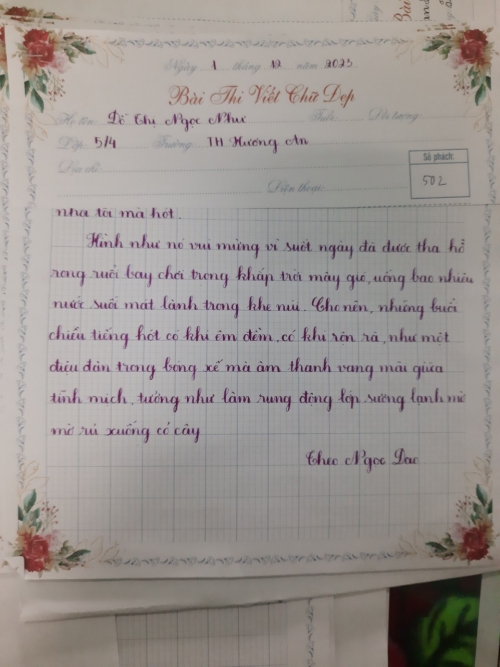 Ngày 1 tháng 12 năm 2023
Bài Thi Viết Chữ Đẹp
Họ tên: Đỗ Thị Ngọc Như Tỉnh: Đối tượng:
Lớp: 5/4 Trường: TH Hương An
Địa chỉ:
Số phách:
502
Điện thoại:
nhà tôi mà hót.
Hình như nó vui mừng vì suốt ngày đã được tha hồ
rong ruổi bay chơi trong khắp trời mây gió, uống bao nhiêu
nước suối mát lành trong khe núi. Cho nên, những buổi
chiều tiếng hót có khi êm đềm, có khi rộn rã, như một
điệu đàn trong bóng xế mà âm thanh vang mãi giữa
tĩnh mịch, tưởng như làm rung động lớp sương lạnh mờ
mờ rủ xuống cỏ cây
Theo Ngọc Dao